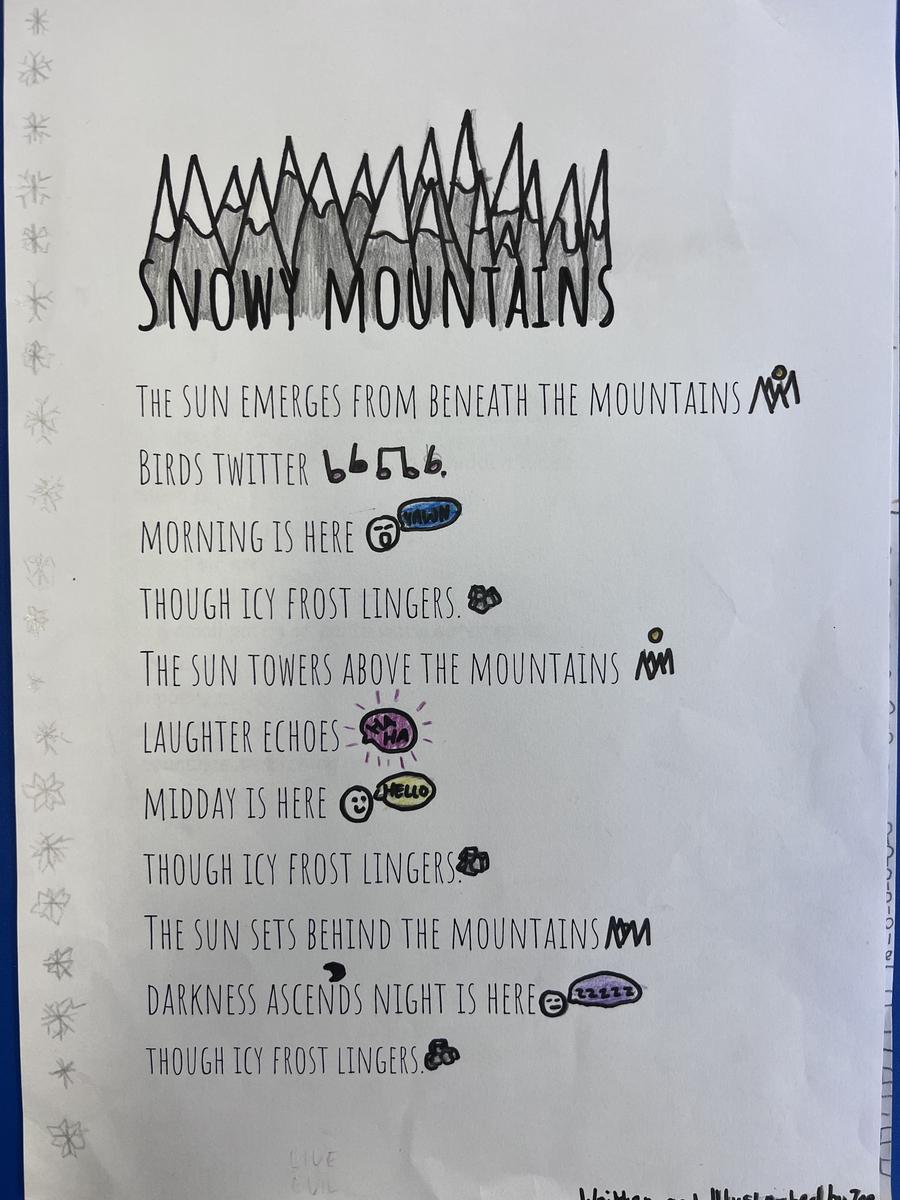 SNOWY MOUNTAINS
THE SUN EMERGES FROM BENEATH THE MOUNTAINS
BIRDS TWITTER
MORNING IS HERE YAWN
THOUGH ICY FROST LINGERS.
THE SUN TOWERS ABOVE THE MOUNTAINS
LAUGHTER ECHOES HA HA
MIDDAY IS HERE HELLO
THOUGH ICY FROST LINGERS.
THE SUN SETS BEHIND THE MOUNTAINS
DARKNESS ASCENDS NIGHT IS HERE ZZZZZ
THOUGH ICY FROST LINGERS.
LIVE
EVIL
Written and Illustrated by